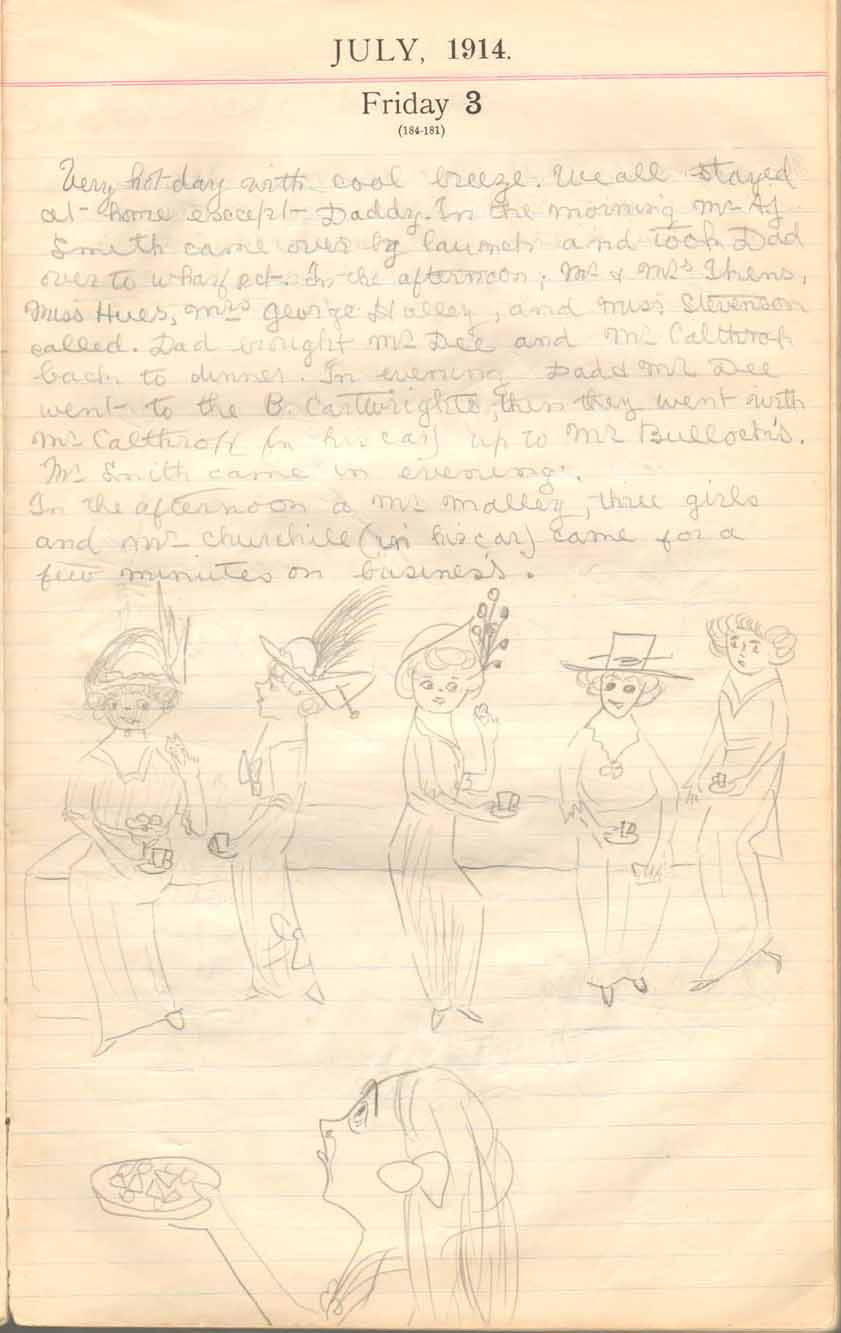 JULY, 1914.
Friday 3
(184-181)
Very hot day with cool breeze. We all stayed
at home except Daddy. In the morning Mr
Smith came over by launch and took Dad
over to wharf ect. In the afternoon, Mr & Mrs
Miss Hues, Mrs George Halley, and Miss Stevenson
called. Dad brought Mr Dee and Mr Calthrop
back to dinner. In evening Dad & Mr Dee
went to the B. Cartwrights, then they went with
Mr Calthrop (in his car) up to Mr Bullock's.
Mr Smith came in evening.
In the afternoon a Mr Malley, three girls
and Mr Churchill (in his car) came for a
few minutes on business.